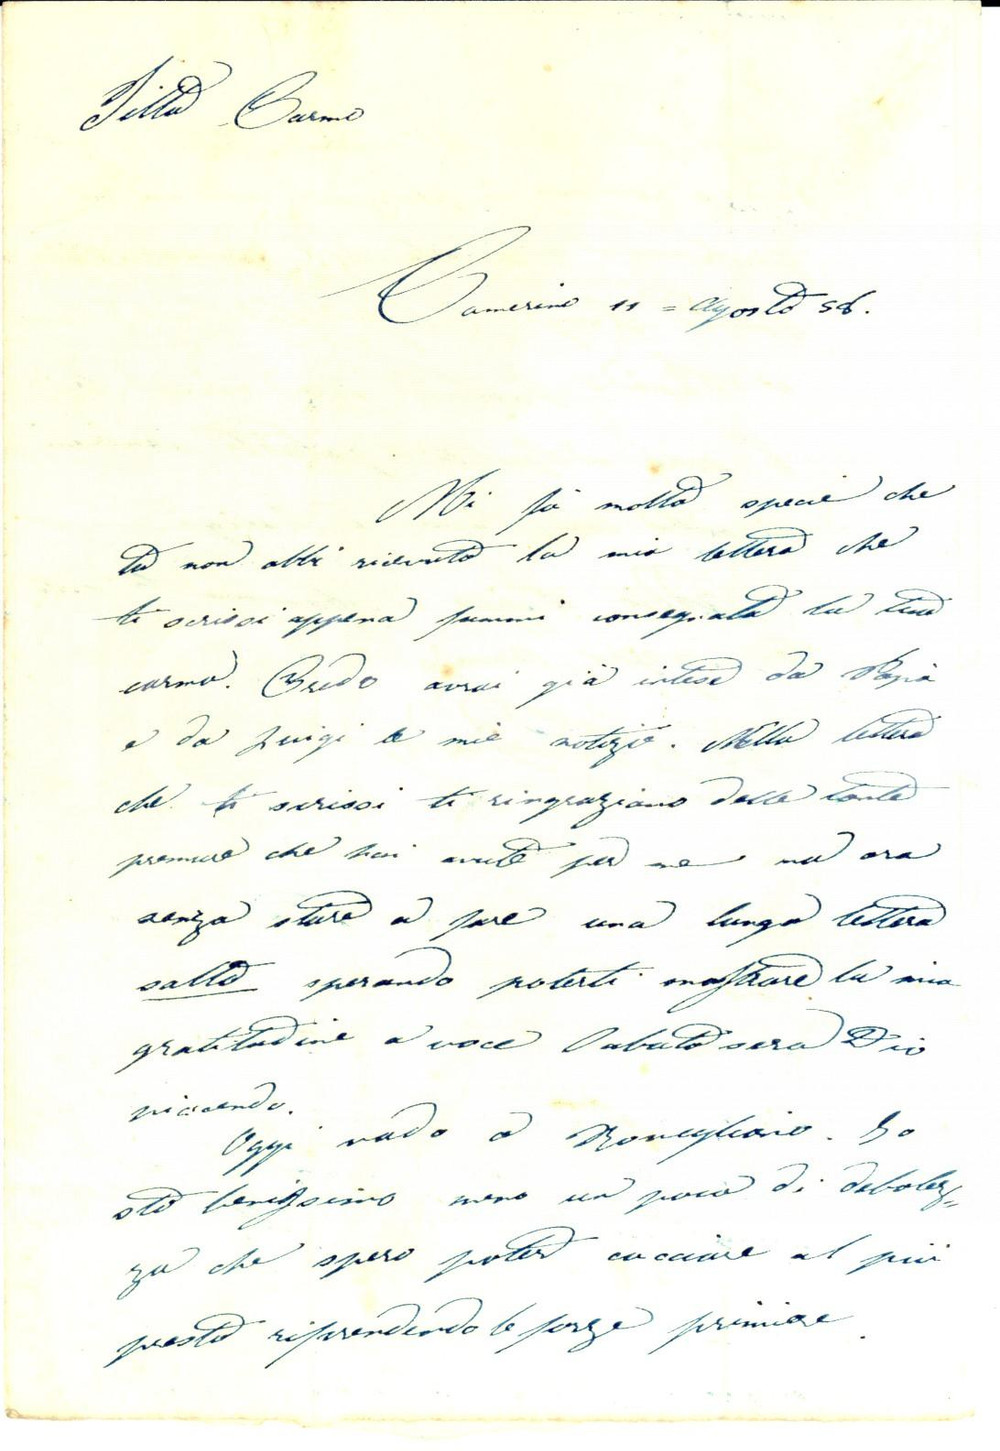 Titta Carmo
Camerino 11 = Agosto 56.
Mi fà molta specie che
tu non abbi ricevuto la mia lettera che
ti scrissi appena fummi consegnata la tua
carma. Credo avrai già inteso da Papà
e da Luigi le mie notizie. Nella lettera
che ti scrissi ti ringraziavo delle tante
premure che hai avute per me ma ora
senza stare a fare una lunga lettera
salto sperando poterti mostrare la mia
gratitudine a voce Sabato sera Dio
piacendo.
Oggi vado a Ronciglione. Io
stò benissimo meno un poco di debolez=
za che spero poter cacciare al più
presto riprendendo le forze primiere.